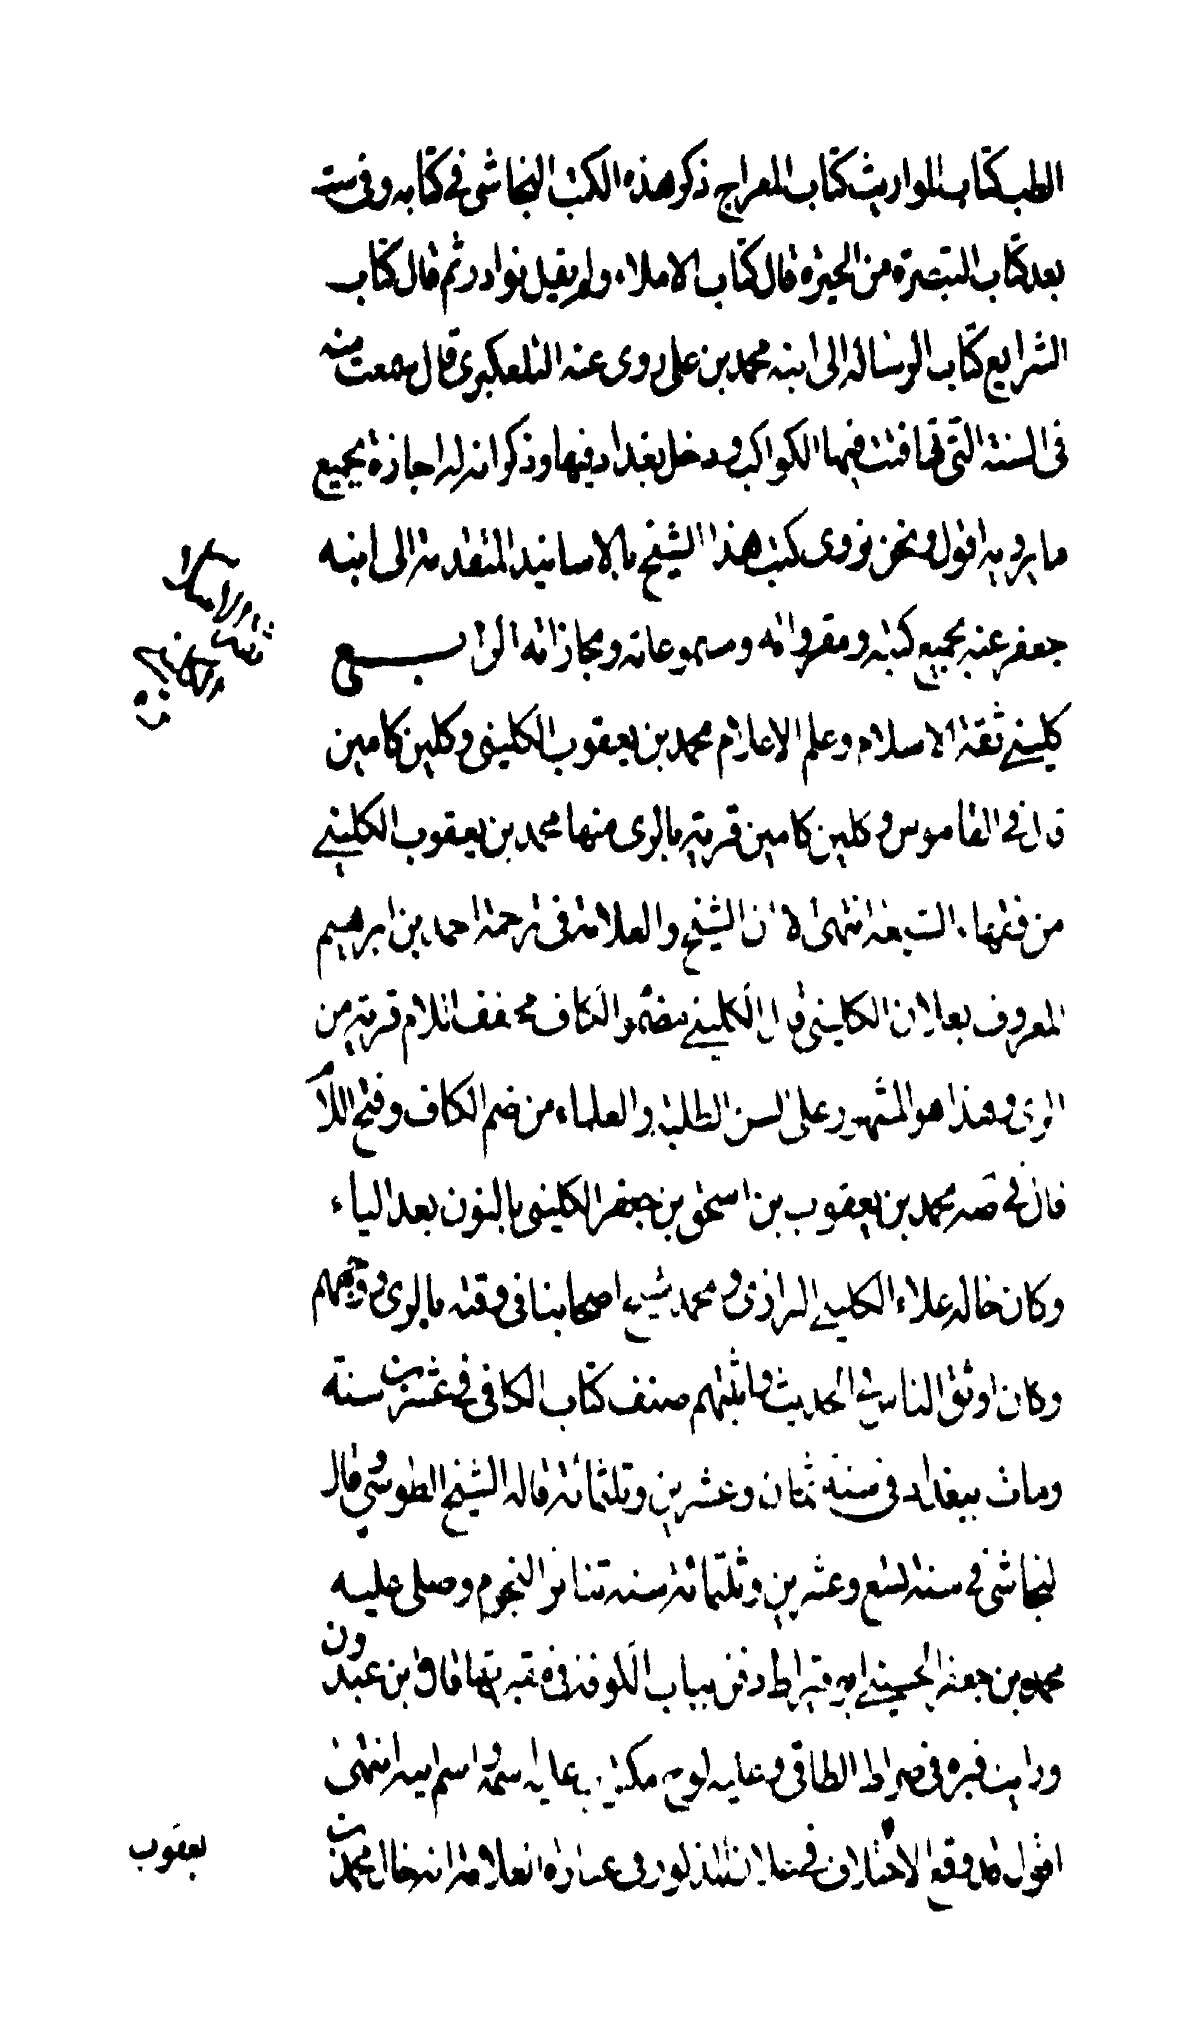 الطب كتاب المواريث كتاب المعراج ذكر هذه الكتب النجاشي في كتابه وفي ست
بعد كتاب التبصرة من الحيرة قال كتاب الاملاء ولم يقيل نوادر ثم قال كتاب
الشرايع كتاب الرسالة الى ابنه محمد بن علي روى عنه التلعكبري قال سمعت منه
في السنة التي تهافتت فيها الكواكب ودخل بغداد فيها وذكر انه له اجازة بجميع
ما يرويه اقول ونحن نروى كتب هذا الشيخ بالاسانيد المتقدمة الى ابنه
جعفر عنه بجميع كتبه ومقرواته ومسموعاته ومجازاته الرابع
ثقة الاسلام
الكليني
كليني ثقة الاسلام وعلم الاعلام محمد بن يعقوب الكليني وكلين كامين
قال في القاموس وكلين كامين قرية بالرى منها محمد بن يعقوب الكليني
من فقهاء الشيعة انتهى لان الشيخ والعلامة في ترجمة احمد بن ابرهيم
المعروف بعلان الكليني قال الكليني مضموم الكاف مخفف اللام قرية من
الرى وهذا هو المشهور على السن الطلبة والعلماء من ضم الكاف وفتح اللام
قال في صه محمد بن يعقوب بن اسحق بن جعفر الكليني بالنون بعد الياء
وكان خاله علاء الكليني الرازي ومحمد شيخ اصحابنا في وقته بالرى ووجههم
وكان اوثق الناس في الحديث واثبتهم صنف كتاب الكافي في عشرين سنة
ومات ببغداد في سنة ثمان وعشرين وثلثمائة قاله الشيخ الطوسي وقال
لنجاشي في سنة تسع وعشرين وثلثمائة سنة تناثر النجوم وصلى عليه
محمد بن جعفر الحسيني ابو قيراط دفن بباب الكوفة في مقبرتها قال ابن عبدون
ورايت قبره في صراط الطائي وعليه لوح مكتوب عليه اسمه واسم ابيه انتهى
اقول قد وقع الاختلاف في علان المذكور وفي عبارة العلامة انه خال محمد بن
يعقوب